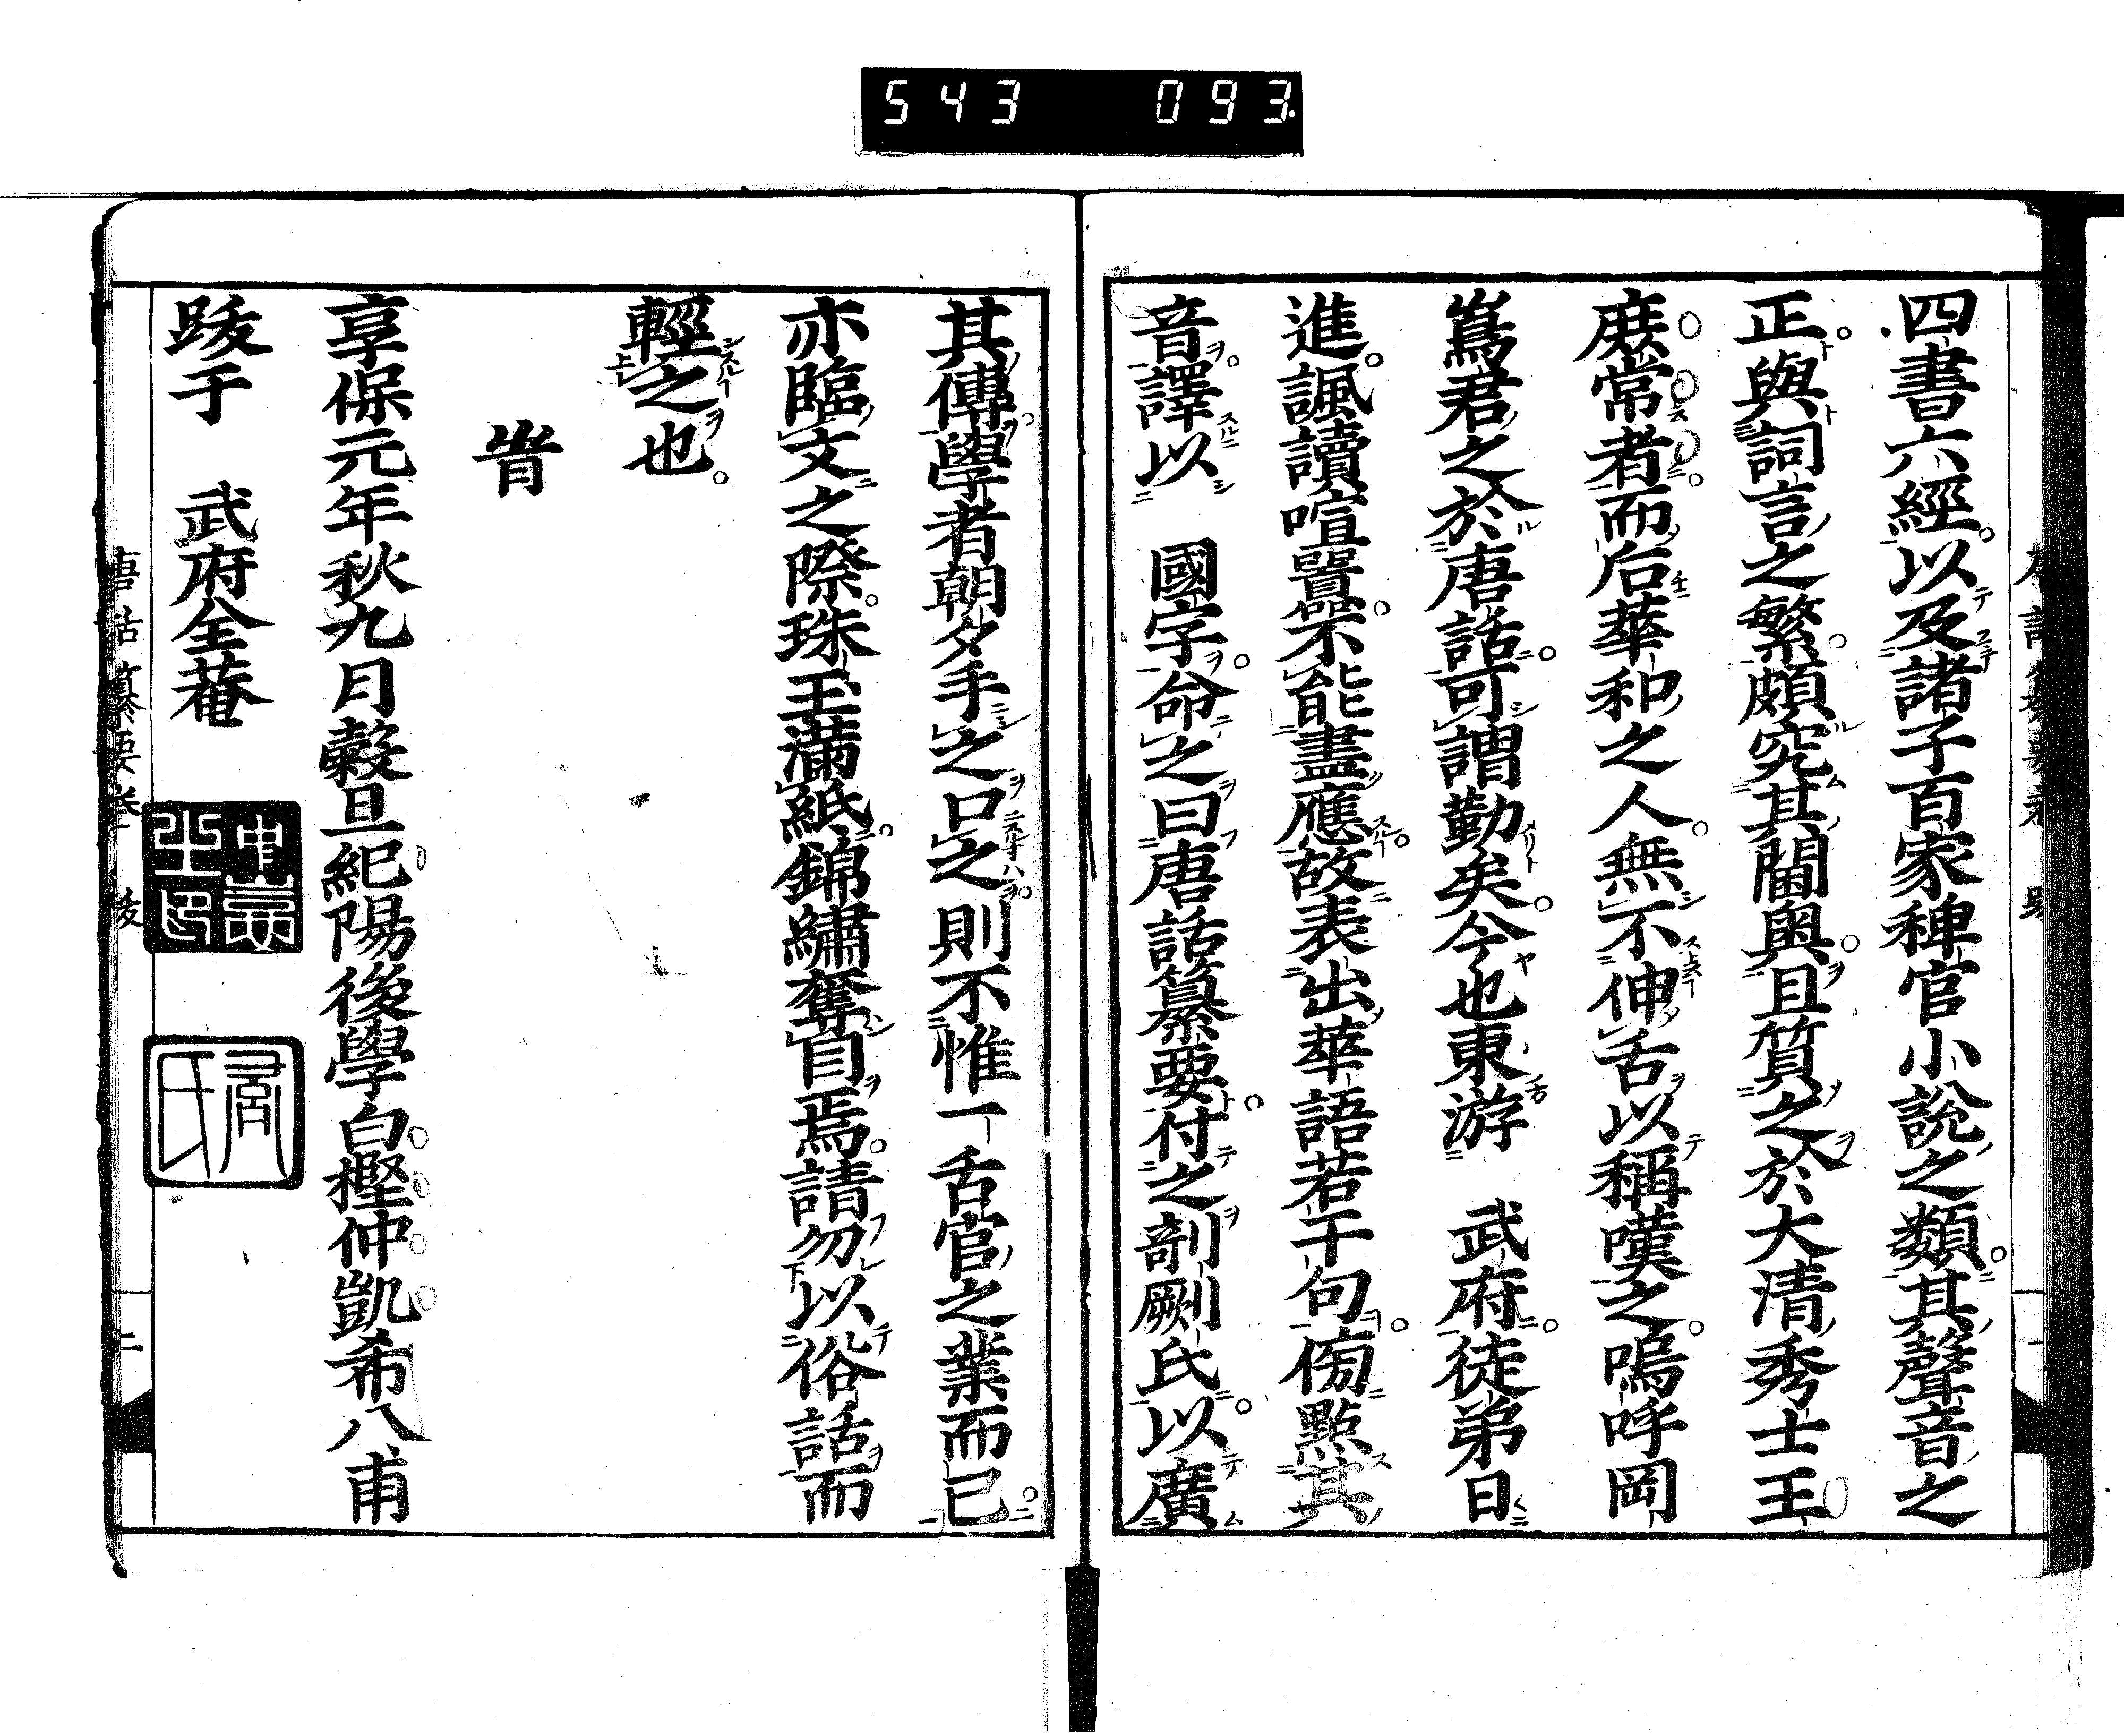 543 093
四書六經以及諸子百家稗官小說之類其聲音之
正與詞言之繁頗究其閫奧且質之於大清秀士王
庻常者而后華和之人無不伸舌以稱嘆之嗚呼岡
嶌君之於唐話可謂勤矣今也東游 武府徒弟日
進諷讀喧囂不能盡應故表出華語若干句傍點其
音譯以 國字命之曰唐話纂要付之剞劂氏以廣
其傳學者朝夕手之口之則不惟一舌官之業而已
亦臨文之際珠玉滿紙錦繡奪目焉請勿以俗話而
輕之也
旹
享保元年秋九月穀旦紀陽後學白樫仲凱希八甫
跋于 武府全菴
唐話纂要 跋 二